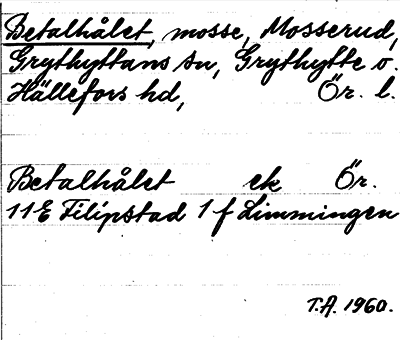 Betalhålet, mosse, Mosserud,
Grythyttans sn, Grythytte o.
Hällefors hd, Ör. l.
Betalhålet ek Ör.
11E Filipstad 1 f Limmingen
T.A. 1960.